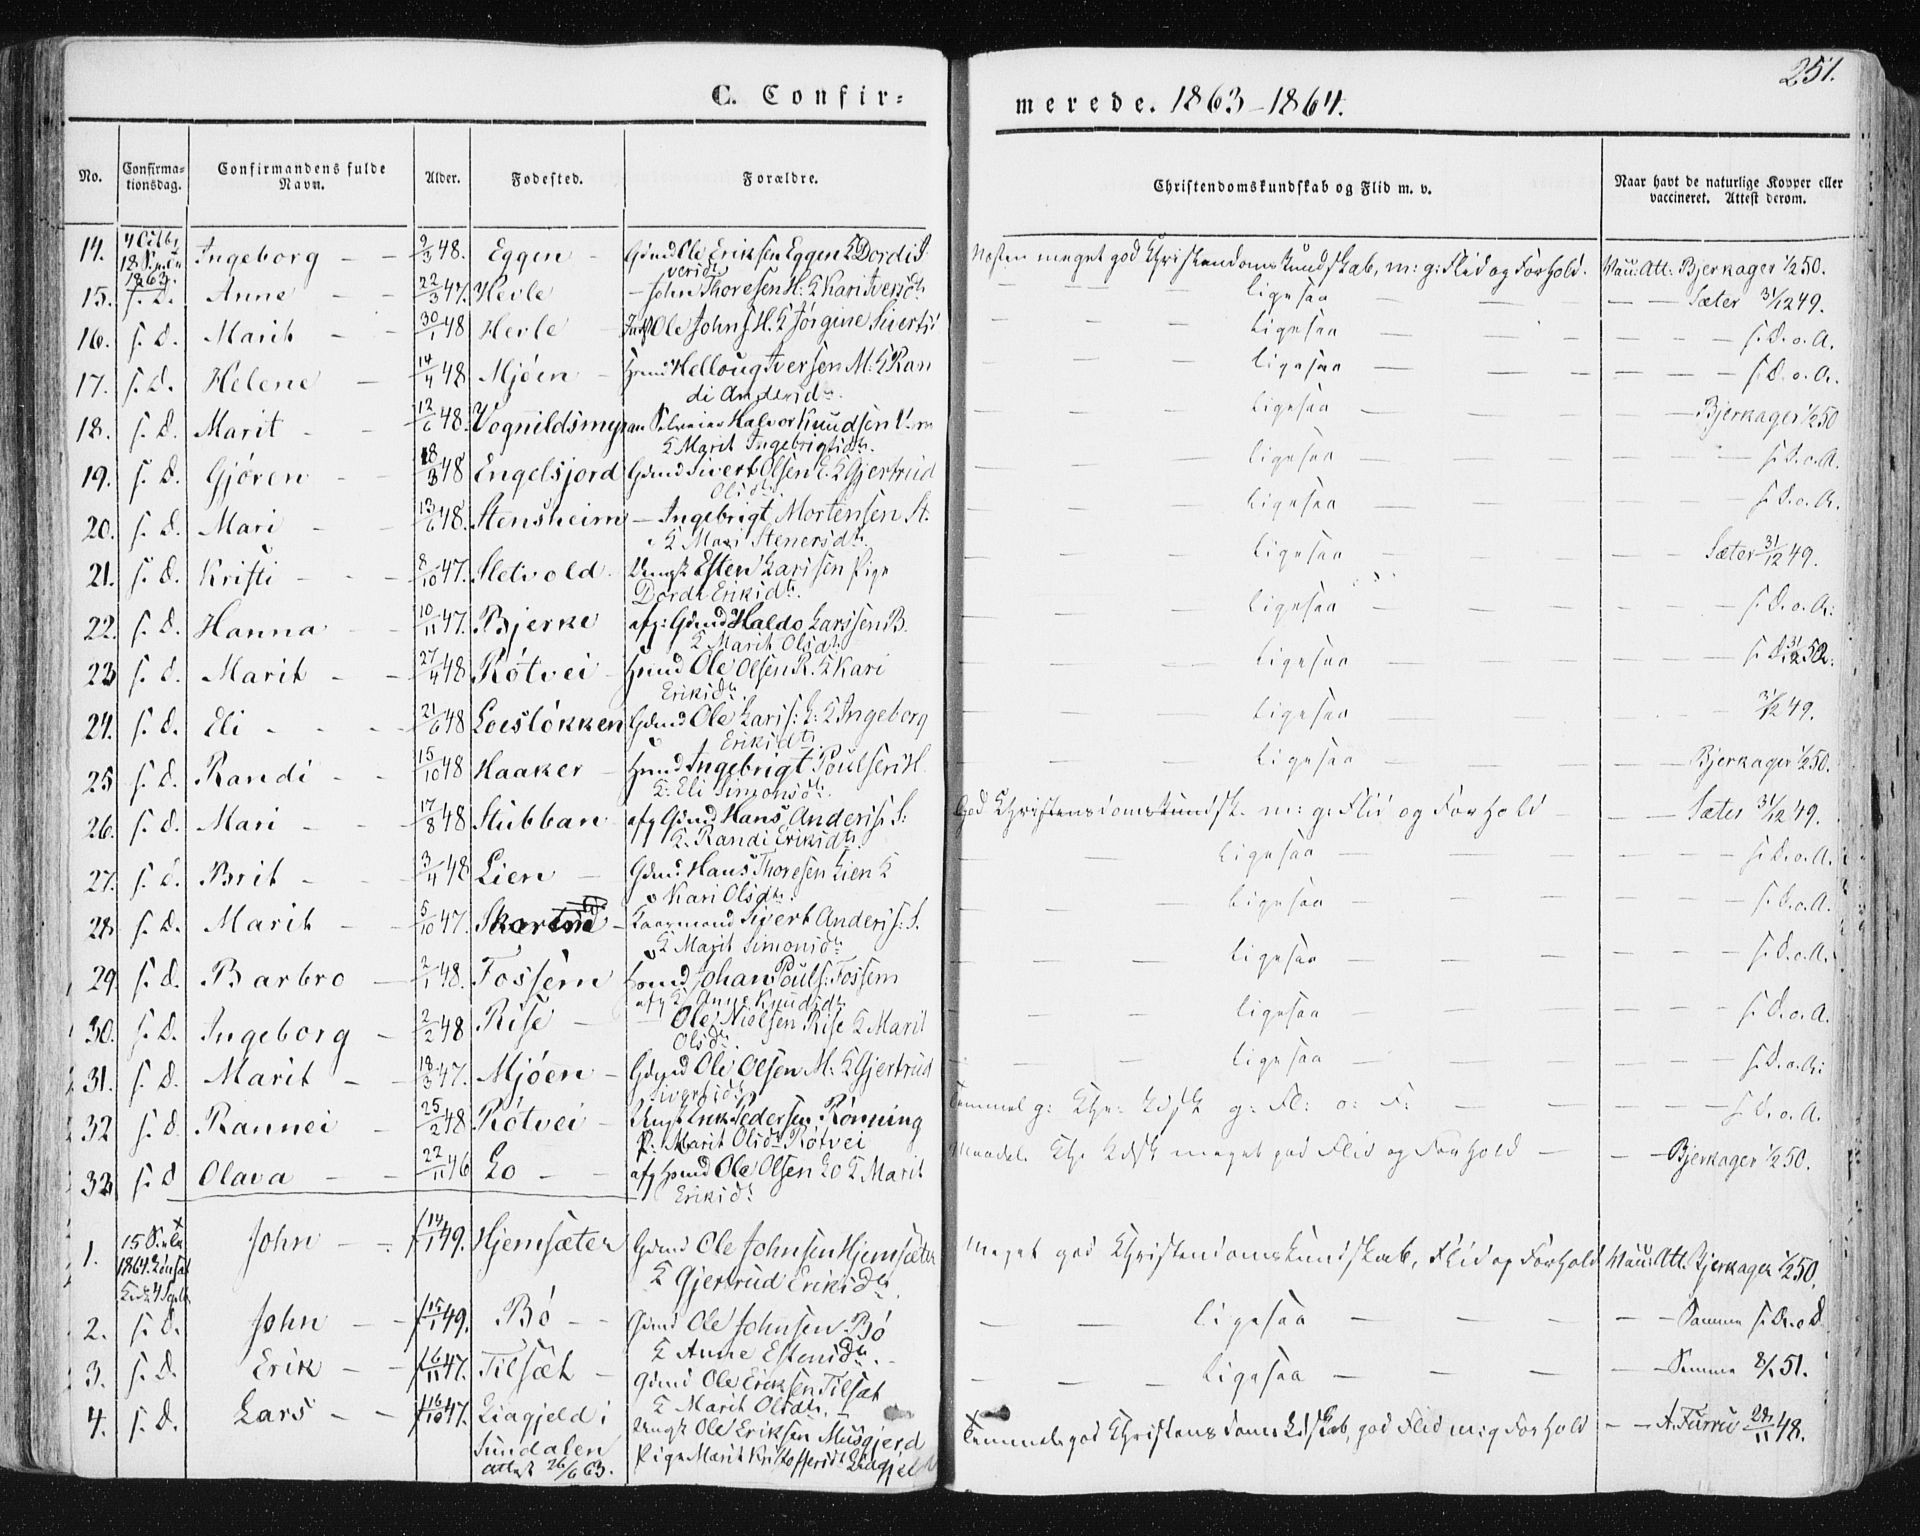 251.
C. Confir=
merede. 1863-1864.
No. Confirma-tionsdag. Confirmandens fulde Navn. Alder. Fødested. Forældre. Christendomskundskab og Flid m. v. Naar havt de naturlige Kopper eller vaccineret. Attest derom.
14. 18 1863. Ingeborg 9/3 48. Eggen Gmd Ole Eriksen Eggen & Dordi Iversdt. Næsten meget god Christendomskundskab, m: g: Flid og Forhold. Att: Bjerkager 1/2 50.
15. s. D. Anne 22/3 47. Hevle John Thoresen H. & Kari Iversdt. ligesaa Sæter 31/12 49.
16. s. D. Marit 30/1 48 Hevle Ole Johns. H. & Jørgine Sivertsd. ligesaa s. D. o. A.
17. s. D. Helene 14/4 48 Mjøen Hmd Helloug Iversen M: & Randi Andersdt. ligesaa s. D. o. A.
18. s. D. Marit 12/6 48. Vognildsmyran Halvor Knudsen & Marit Ingebrigtsdt. ligesaa Bjerkager 1/2 50
19. s. D. Gjøren 18/3 48 Engelsjord Gmd Sivert Olsen E. & Gjertrud Olsdt. ligesaa s. D. o. A.
20. s. D. Mari 13/6 48. Stensheim Ingebrigt Mortensen St. & Mari Stenersdt. ligesaa s. D. o. A.
21. s. D. Kristi 8/10 47. Sletvold Ungk. Esten Larssen Pige Dordi Eriksdt. ligesaa Sæter 31/12 49.
22. s. D. Hanna 10/11 47. Bjerke afg: Gmd Haldo Larssen B. & Marit Olsdt. ligesaa s. D. o. A:
23 s. D. Marit 27/4 48 Røtvei Hmd Ole Olsen R. & Kari Eriksdt. ligesaa
24. s. D. Eli 21/6 48 Loesløkken Gmd Ole Larss: L: & Ingeborg Eriksdt. ligesaa 31/12 49.
25 s. D. Randi 15/10 48 Haaker Hmd Ingebrigt Poulsen H. & Eli Simonsdt. ligesaa Bjerkager 1/2 50.
26. s. D. Mari 17/8 48 Stubban afg Gmd Hans Anderss. S: & Randi Eriksdt. God Christensdomskundsk. m: g: Flid og Forhold Sæter 31/12 49.
27. s. D. Brit 3/4 48 Lien Gmd Hans Thoresen Lien & Kari Olsdt. ligesaa s. D. o. A.
28 s. D. Marit 5/10 47. Kaarmand Sivert Anderss: S. & Marit Simonsdt. ligesaa s. D. o. A.
29. s. D. Barbro 2/1 48. Fossem Hmd Johan Pouls: Fossem afg & Anne Knudsdt. ligesaa s. D. o. A.
30. s. D. Ingeborg 2/2 48 Rise Ole Nielsen Rise & Marit Olsdt. ligesaa s. D. o. A.
31. s. D. Marit 18/3 47. Mjøen Gmd Ole Olsen M. & Gjertrud Sivertsdt. ligesaa s. D. o. A:
32 s. D. Rannei 25/2 48 Røtvei Ungk. Erik Pedersen Rønning P: Marit Olsdt Røtvei Temmel g: Chr: Kdsk g: Fl: o: F: s. D. o. A.
33 s. D Olava 22/11 46 Lo afg Hmd Ole Olsen Lo & Marit Eriksdt. Maadel. Chr Kdsk meget god Flid og Forhold Bjerkager 1/2 50.
1. 15 1864. John 14/1 49. Hjemsæter Gmd Ole Johnsen Hjemsæter & Gjertrud Eriksdt. Meget god Christendomskundskab, Flid og Forhold Att. Bjerkager 1/2 50.
2. s. D. John 15/1 49. Bö Gmd Ole Johnsen Bö & Anne Estensdt. ligesaa Samme
3. s. D. Erik 16/11 47. Tilsæt Gmd Ole Eriksen Tilsæt & Marit Olsdt. ligesaa Samme 8/1 51.
4. s. D. Lars 16/10 47. Liagjeld i Sundalen Attest 26/6 63. Ungk Ole Eriksen Musgjerd Pige Marit Kristoffersdt Liagjeld Temmel. god Christensdomskdskab, god Flid m: g Forhold A. Furru 28/11 48.